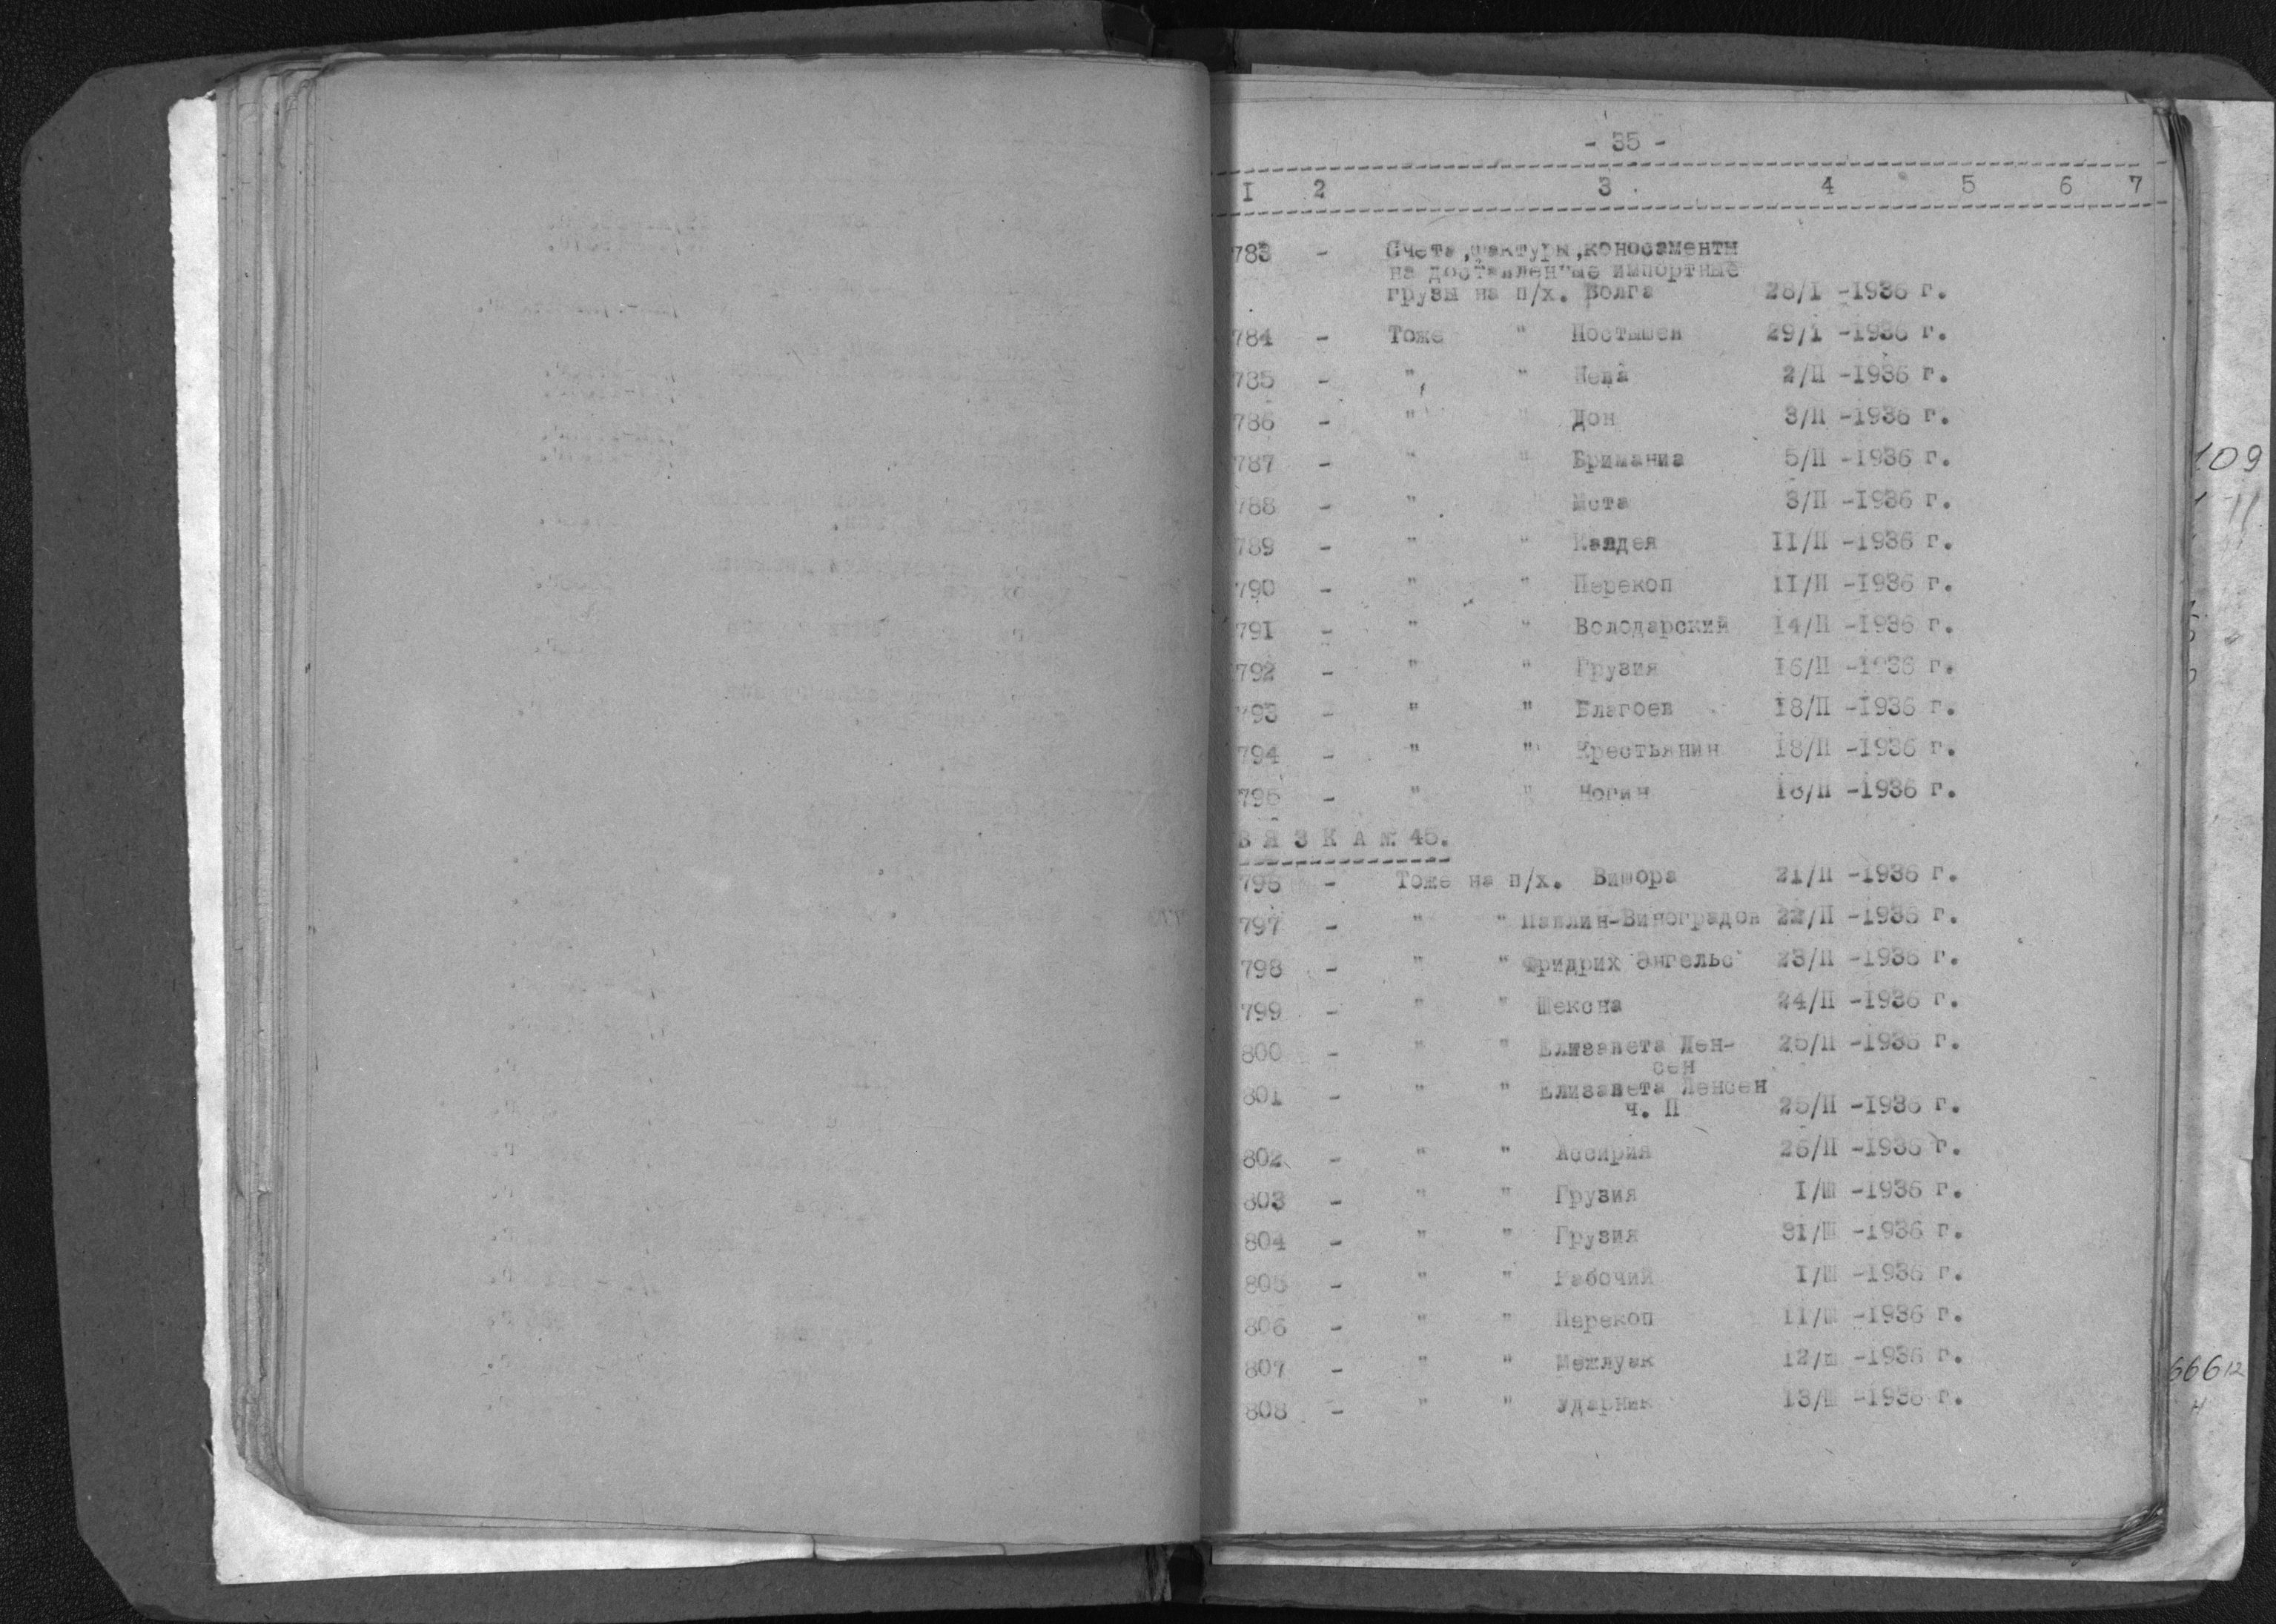 - 35 -
I 2 3 4 5 6 7
783 - Счета,фактуры,коносаменты
на доставленные импортные
грузы на п/х. Волга 28/I -1936 г.
784 - Тоже " Постышев 29/I -1936 г.
785 - " " Нева 2/II -1936 г.
786 - " " Дон 3/II -1936 г.
787 - " " Бримания 5/II -1936 г.
788 - " " Мста 3/II -1936 г.
789 - " " Халдея II/II -1936 г.
790 - " " Перекоп II/II -1936 г.
791 - " " Володарский I4/II -1936 г.
792 - " " Грузия I6/II -1936 г.
793 - " " Благоев I8/II -1936 г.
794 - " " Крестьянин I8/II -1936 г.
795 - " " Ногин I8/II -1936 г.
В Я З К А № 45.
796 - Тоже на п/х. Вишора 21/II -1936 г.
797 - " " Павлин-Виноградов 22/II -1936 г.
798 - " " Фридрих Энгельс 23/II -1936 г.
799 - " " Шексна 24/II -1936 г.
800 - " " Елизавета Лен- 25/II -1936 г.
сен
801 - " " Елизавета Ленсен
ч. II 25/II -1936 г.
802 - " " Ассирия 26/II -1936 г.
803 - " " Грузия I/Ш -1936 г.
804 - " " Грузия 31/Ш -1936 г.
805 - " " Рабочий I/Ш -1936 г.
806 - " " Перекоп II/Ш -1936 г.
807 - " " Межлуак I2/Ш -1936 г.
808 - " " Ударник I3/Ш -1936 г.
109
66612